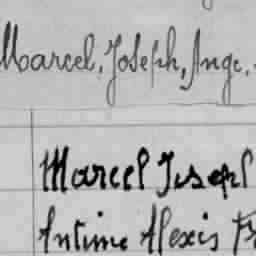 Marcel, Joseph, Ange,
Marcel Joseph
Antime Alexis